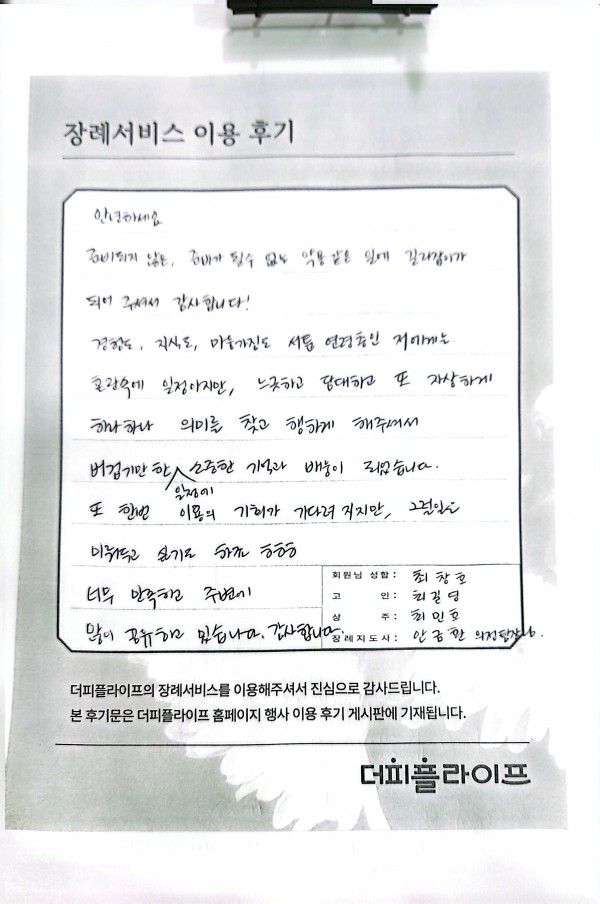 장례서비스 이용 후기
안녕하세요
준비되지 않은, 준비가 될수 없는 악몽 같은 일에 길라잡이가
되어 주셔서 감사합니다!
경험도, 지식도, 마음가짐도 서툰 연령층인 저에게는
혼란속에 일정이지만, 느긋하고 담대하고 또 자상하게
하나하나 의미를 찾고 행하게 해주셔서
버겁기만 한 일정에 소중한 기억과 배움이 되었습니다.
또 한번 이용의 기회가 기다려 지지만, 그럴일은
미뤄두고 싶기도 하고 ㅎㅎㅎ
너무 만족하고 주변에
많이 공유하고 있습니다. 감사합니다.
회원님 성함 : 최창호
고 인 : 최길영
상 주 : 최민호
장례지도사 : 안금환 의전팀장님.
더피플라이프의 장례서비스를 이용해주셔서 진심으로 감사드립니다.
본 후기문은 더피플라이프 홈페이지 행사 이용 후기 게시판에 기재됩니다.
더피플라이프